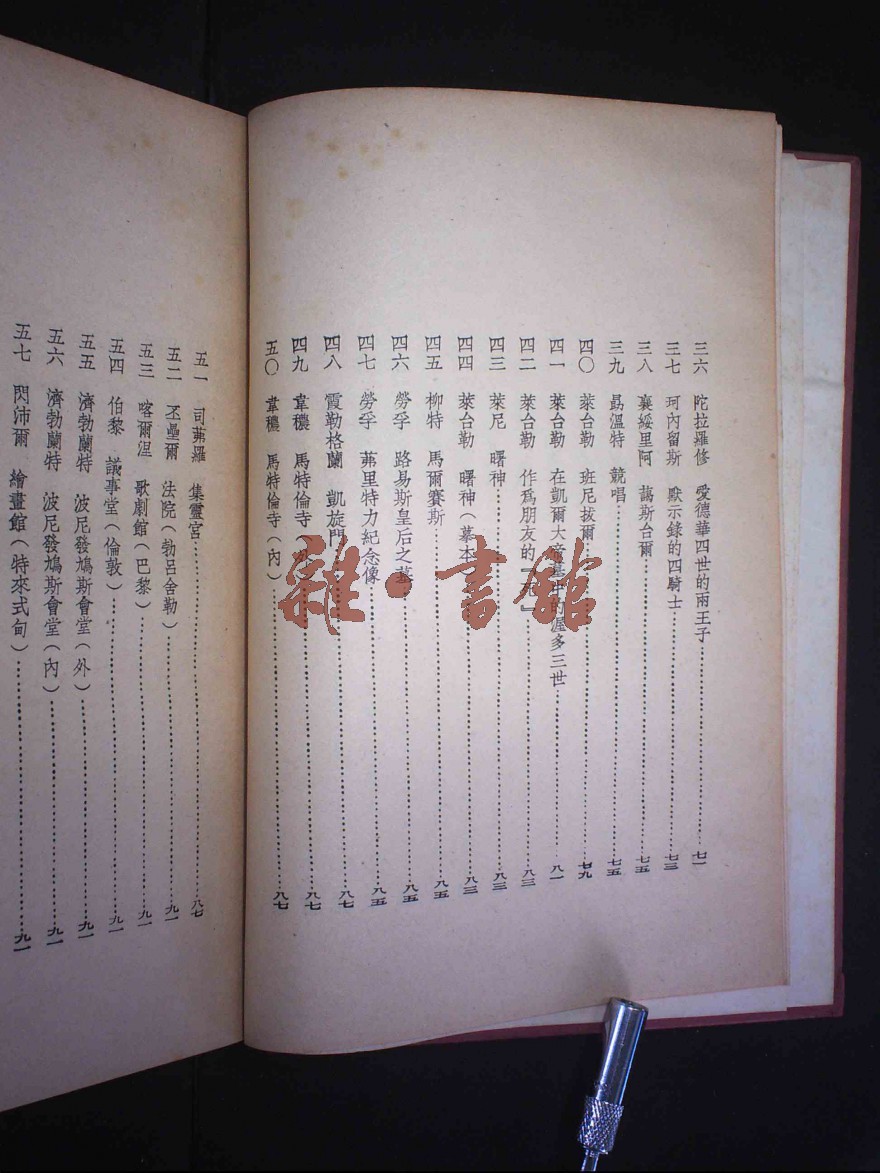 三六 陀拉羅修 愛德華四世的兩王子……七一
三七 珂內留斯 默示錄的四騎士……七三
三八 襄綏里阿 藹斯台爾……七五
三九 勗溫特 競唱……七五
四〇 萊台勒 班尼拔爾……七九
四一 萊台勒 在凱爾大帝墓中的渥多三世……八一
四二 萊台勒 作爲朋友的「死」……八三
四三 萊尼 曙神……八三
四四 萊台勒 曙神(摹本)……八三
四五 柳特 馬爾賽斯……八五
四六 勞孚 路易斯皇后之墓……八五
四七 勞孚 茀里特力紀念像……八五
四八 霞勒格蘭 凱旋門……八七
四九 韋穠 馬特倫寺(外)……八七
五〇 韋穠 馬特倫寺(內)……八七
五一 司茀羅 集靈宮……八七
五二 丕壘爾 法院(勃呂舍勒)……九一
五三 喀爾涅 歌劇館(巴黎)……九一
五四 伯黎 議事堂(倫敦)……九一
五五 濟勃蘭特 波尼發鳩斯會堂(外)……九一
五六 濟勃蘭特 波尼發鳩斯會堂(內)……九一
五七 閃沛爾 繪畫館(特來式甸)……九一
雜·書館